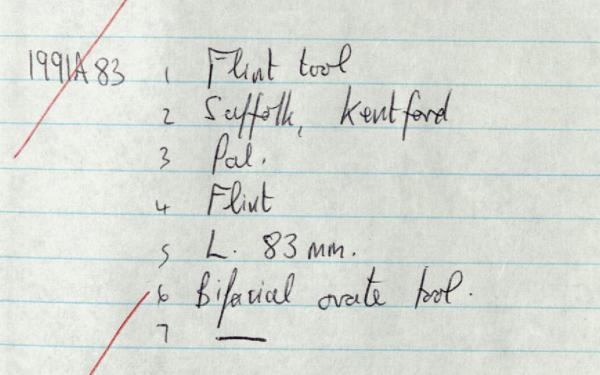 1991A83 1 Flint tool
2 Suffolk, Kentford
3 Pal.
4 Flint
5 L. 83 mm.
6 Bifacial ovate tool.
7 —